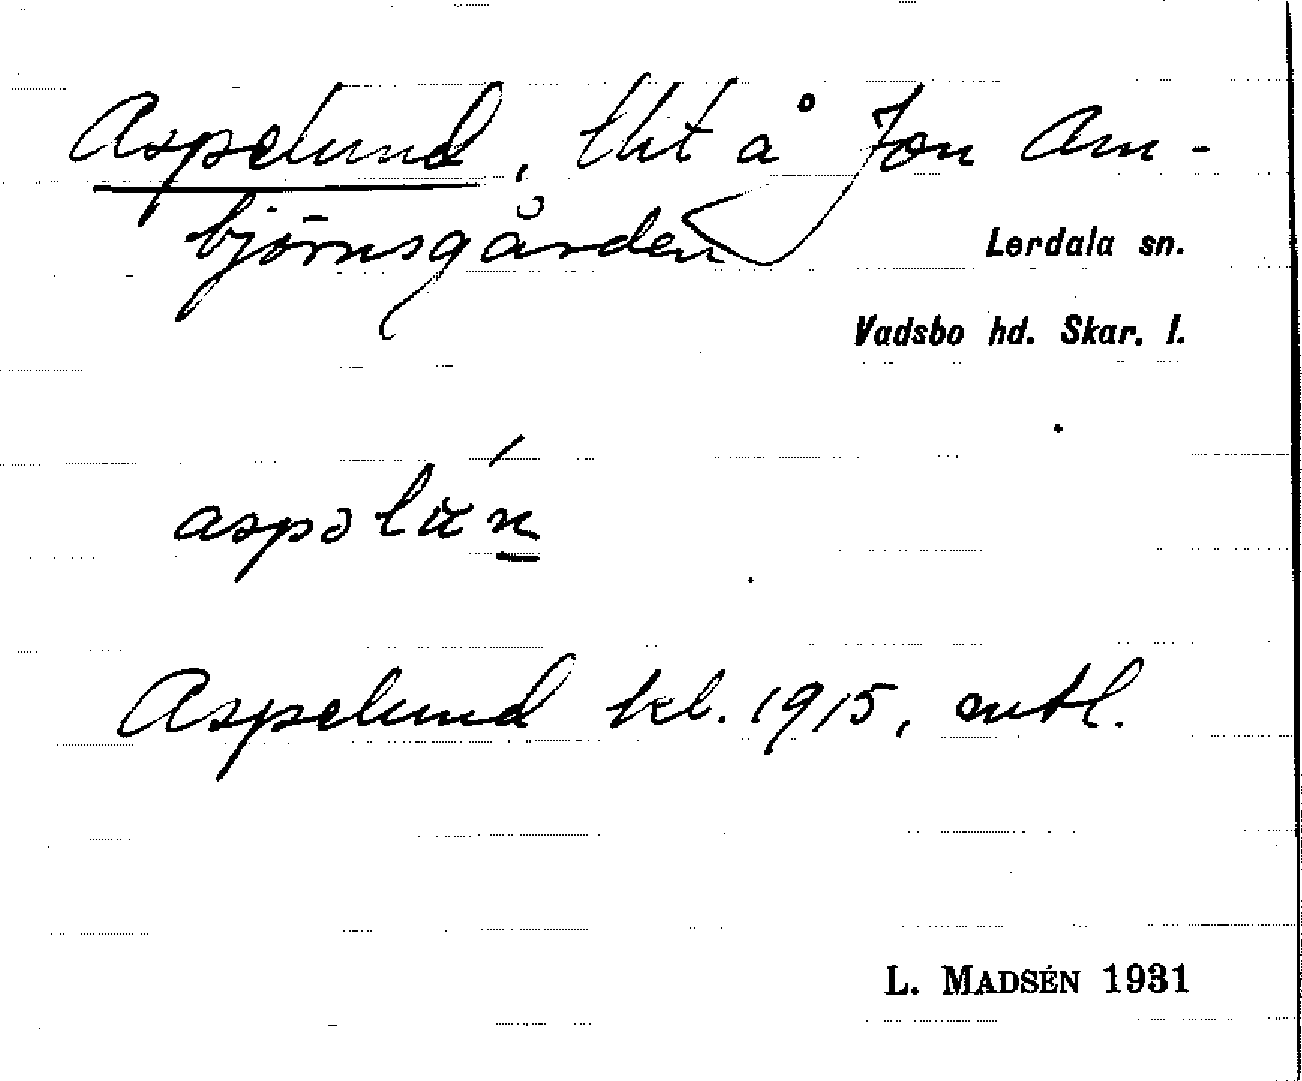 Aspelund, lht å Jon Am-
björnsgården
Lerdala sn.
Vadsbo hd. Skar. l.
aspəlún
Aspelund kl. 1915, mtl.
L. MADSÉN 1931